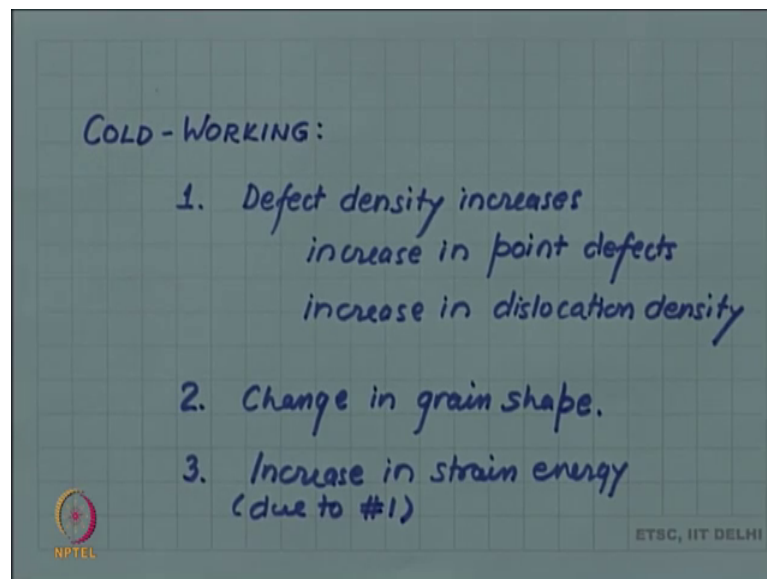 COLD-WORKING:
1. Defect density increases
increase in point defects
increase in dislocation density
2. Change in grain shape.
3. Increase in strain energy
(due to #1)
NPTEL
ETSC, IIT DELHI